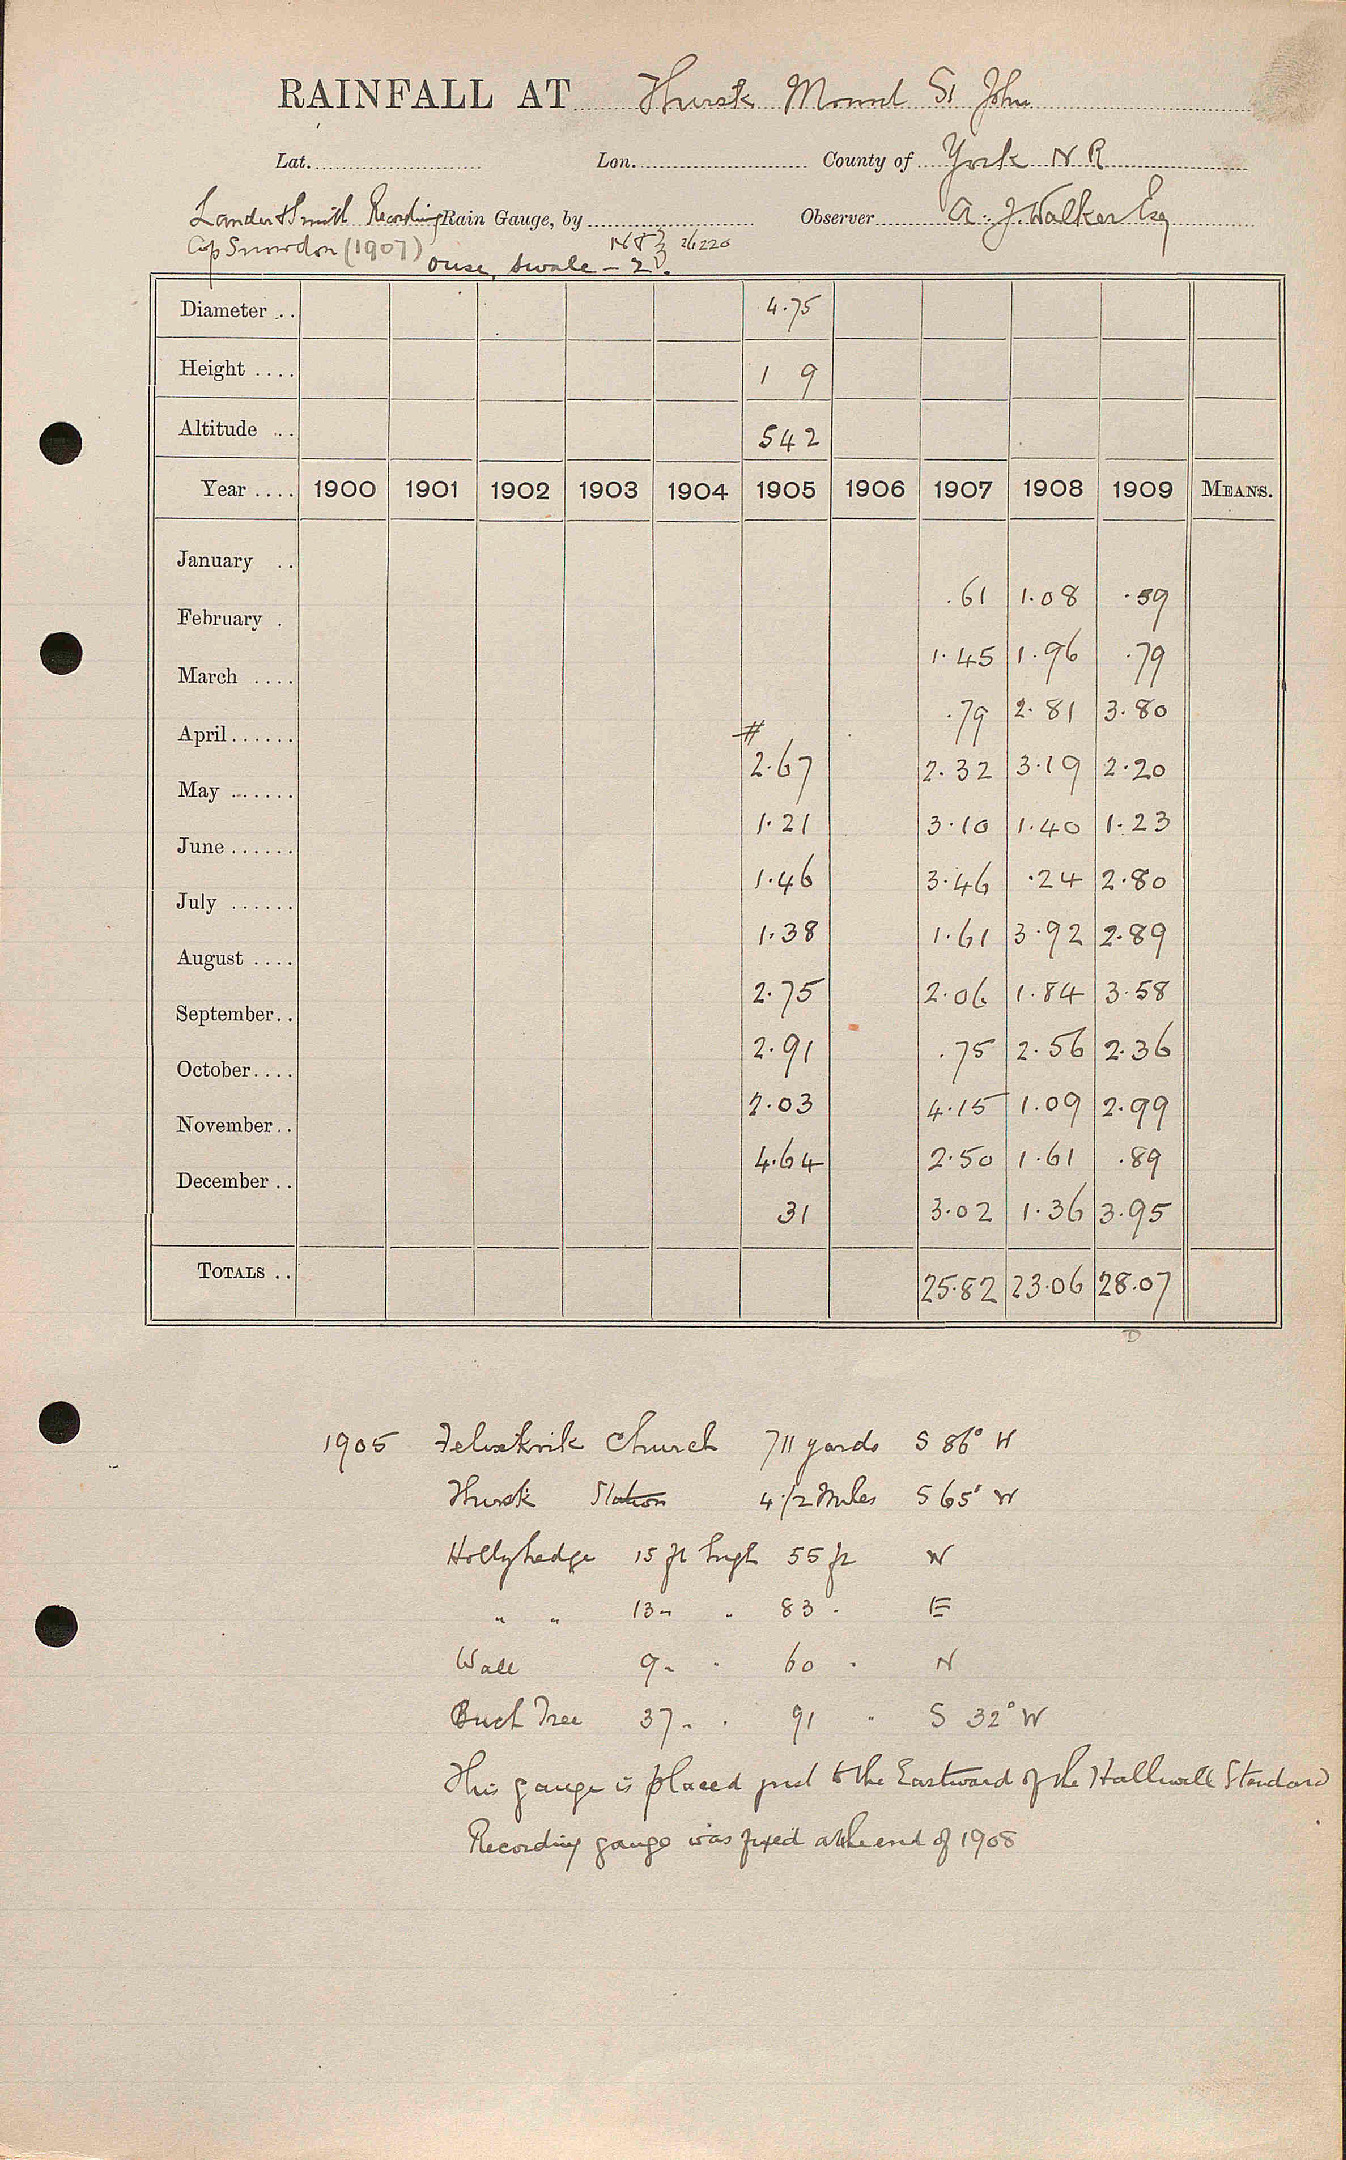 RAINFALL AT Thirsk Mount St John
Lat. Lon. County of York N R
Lander & Smith Recording Rain Gauge, by Observer A. J. Walker Esq
Cop Snowdon (1907) 26220
Ouse, Swale — 2
Diameter .. 4.75
Height .... 1 9
Altitude .. 542
Year .... 1900 1901 1902 1903 1904 1905 1906 1907 1908 1909 MEANS.
January .. .61 1.08 .59
February . 1.45 1.96 .79
March .... .79 2.81 3.80
April ...... # 2.67 2.32 3.19 2.20
May ...... 1.21 3.10 1.40 1.23
June ...... 1.46 3.46 .24 2.80
July ...... 1.38 1.61 3.92 2.89
August .... 2.75 2.06 1.84 3.58
September.. 2.91 .75 2.56 2.36
October.... 2.03 4.15 1.09 2.99
November.. 4.64 2.50 1.61 .89
December .. 31 3.02 1.36 3.95
TOTALS .. 25.82 23.06 28.07
D
1905 Felixkirk Church 711 yards S 86° W
Thirsk Station 4 1/2 Miles S 65° W
Hollyhedge 15 ft high 55 ft W
" " 13 " " 83 " E
Wall 9 " " 60 " N
Birch Tree 37 " " 91 " S 32° W
This gauge is placed just to the Eastward of the Halliwell Standard
Recording gauge was fixed at the end of 1908